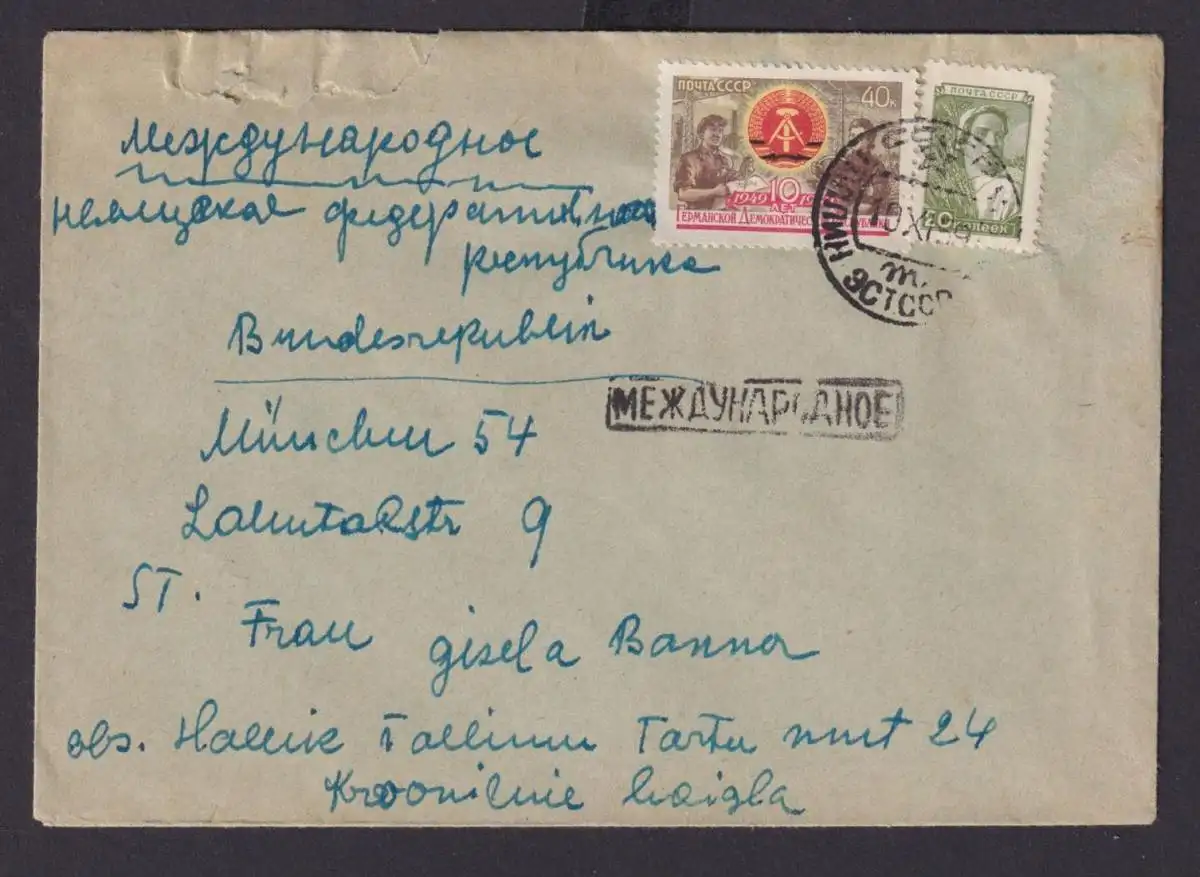 ПОЧТА СССР 40К
1949 10 ЛЕТ
ГЕРМАНСКОЙ ДЕМОКРАТИЧЕСКОЙ
ПОЧТА СССР
КОПЕЕК
10 XI 59
ЭСТ ССР
международное
федеративная
республика
Bundesrepublik
МЕЖДУНАРОДНОЕ
München 54
9
ST.
Frau gisela Banner
abs. Hallik Tallinn Tartu mnt 24
Kroonilise haigla